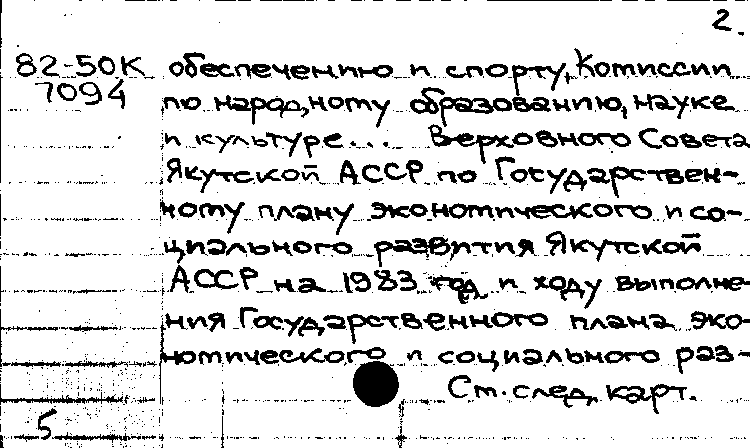 2.
82-50К обеспечению и спорту, Комиссии
7094 по народному образованию, науке
и культуре... Верховного Совета
Якутской АССР по Государствен-
ному плану экономического и со-
циального развития Якутской
АССР на 1983 год и ходу выполне-
ния Государственного плана эко-
номического и социального раз-
См. след. карт.
5